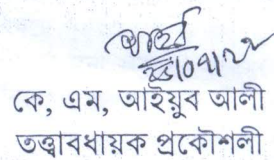 কে, এম, আইয়ুব আলী
তত্ত্বাবধায়ক প্রকৌশলী